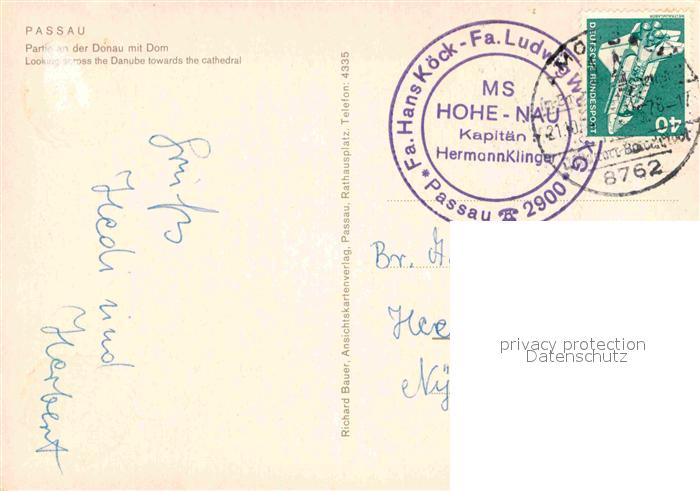 PASSAU
Partie an der Donau mit Dom
Looking across the Danube towards the cathedral
Grüße
Hedi und
Herbert
Richard Bauer, Ansichtskartenverlag, Passau, Rathausplatz, Telefon: 4335
Fa. Hans Köck - Fa. Ludwig
MS
HOHE - NAU
Kapitän
Hermann Klinger
* Passau ☎ 2900 *
DEUTSCHE BUNDESPOST
40
8762
Br.
privacy protection
Datenschutz